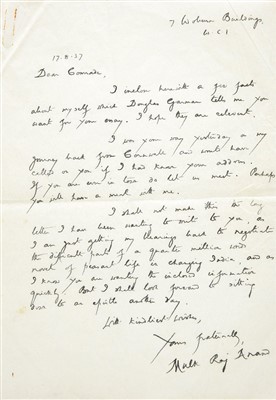 7 Woburn Buildings
W C 1
17.8.37
Dear Comrade,
I enclose herewith a few facts
about myself which Douglas Garman tells me you
want for your essay. I hope they are relevant.
I was your way yesterday on my
journey back from Cornwall and would have
called on you if I had known your address.
If you are ever in town do let us meet. Perhaps
you will have a meal with me.
I shall not make this the long
letter I have been wanting to write to you, as
I am just getting my bearings back to negotiate
the difficult parts of a quarter million words
novel of peasant life in changing India, and as
I know you are wanting the enclosed information
quickly. But I shall look forward to sitting
down to an epistle another day.
With kindliest wishes,
Yours fraternally,
Mulk Raj Anand